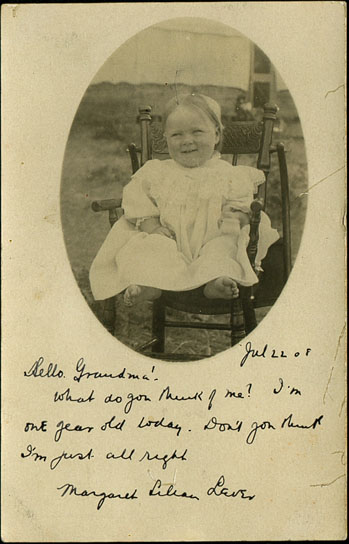 Jul 22 08
Hello Grandma!
What do you think of me? I'm
one year old today. Don't you think
I'm just all right
Margaret Lilian Lever